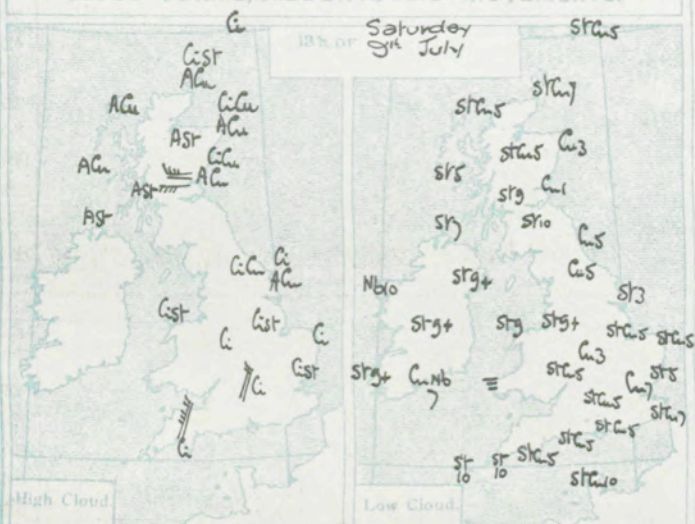 Saturday
13h of 9th July
Ci
CiSt
ACu
ACu
CiCu
ACu
ASt
CiCu
ACu
ACu
ASt
ASt
Ci
CiCu
ACu
CiSt
CiSt
Ci
Ci
CiSt
Ci
Ci
High Cloud.
StCu5
StCu7
StCu5
Cu3
StCu5
St5
St9
Cu1
St7
St10
Cu5
Cu5
Nb10
St9+
St3
St9+
St9
St9+
StCu5
StCu5
Cu3
St9+
CuNb
7
StCu5
St5
Cu7
StCu5
StCu7
StCu5
StCu5
St
10
St
10
StCu5
StCu10
Low Cloud.